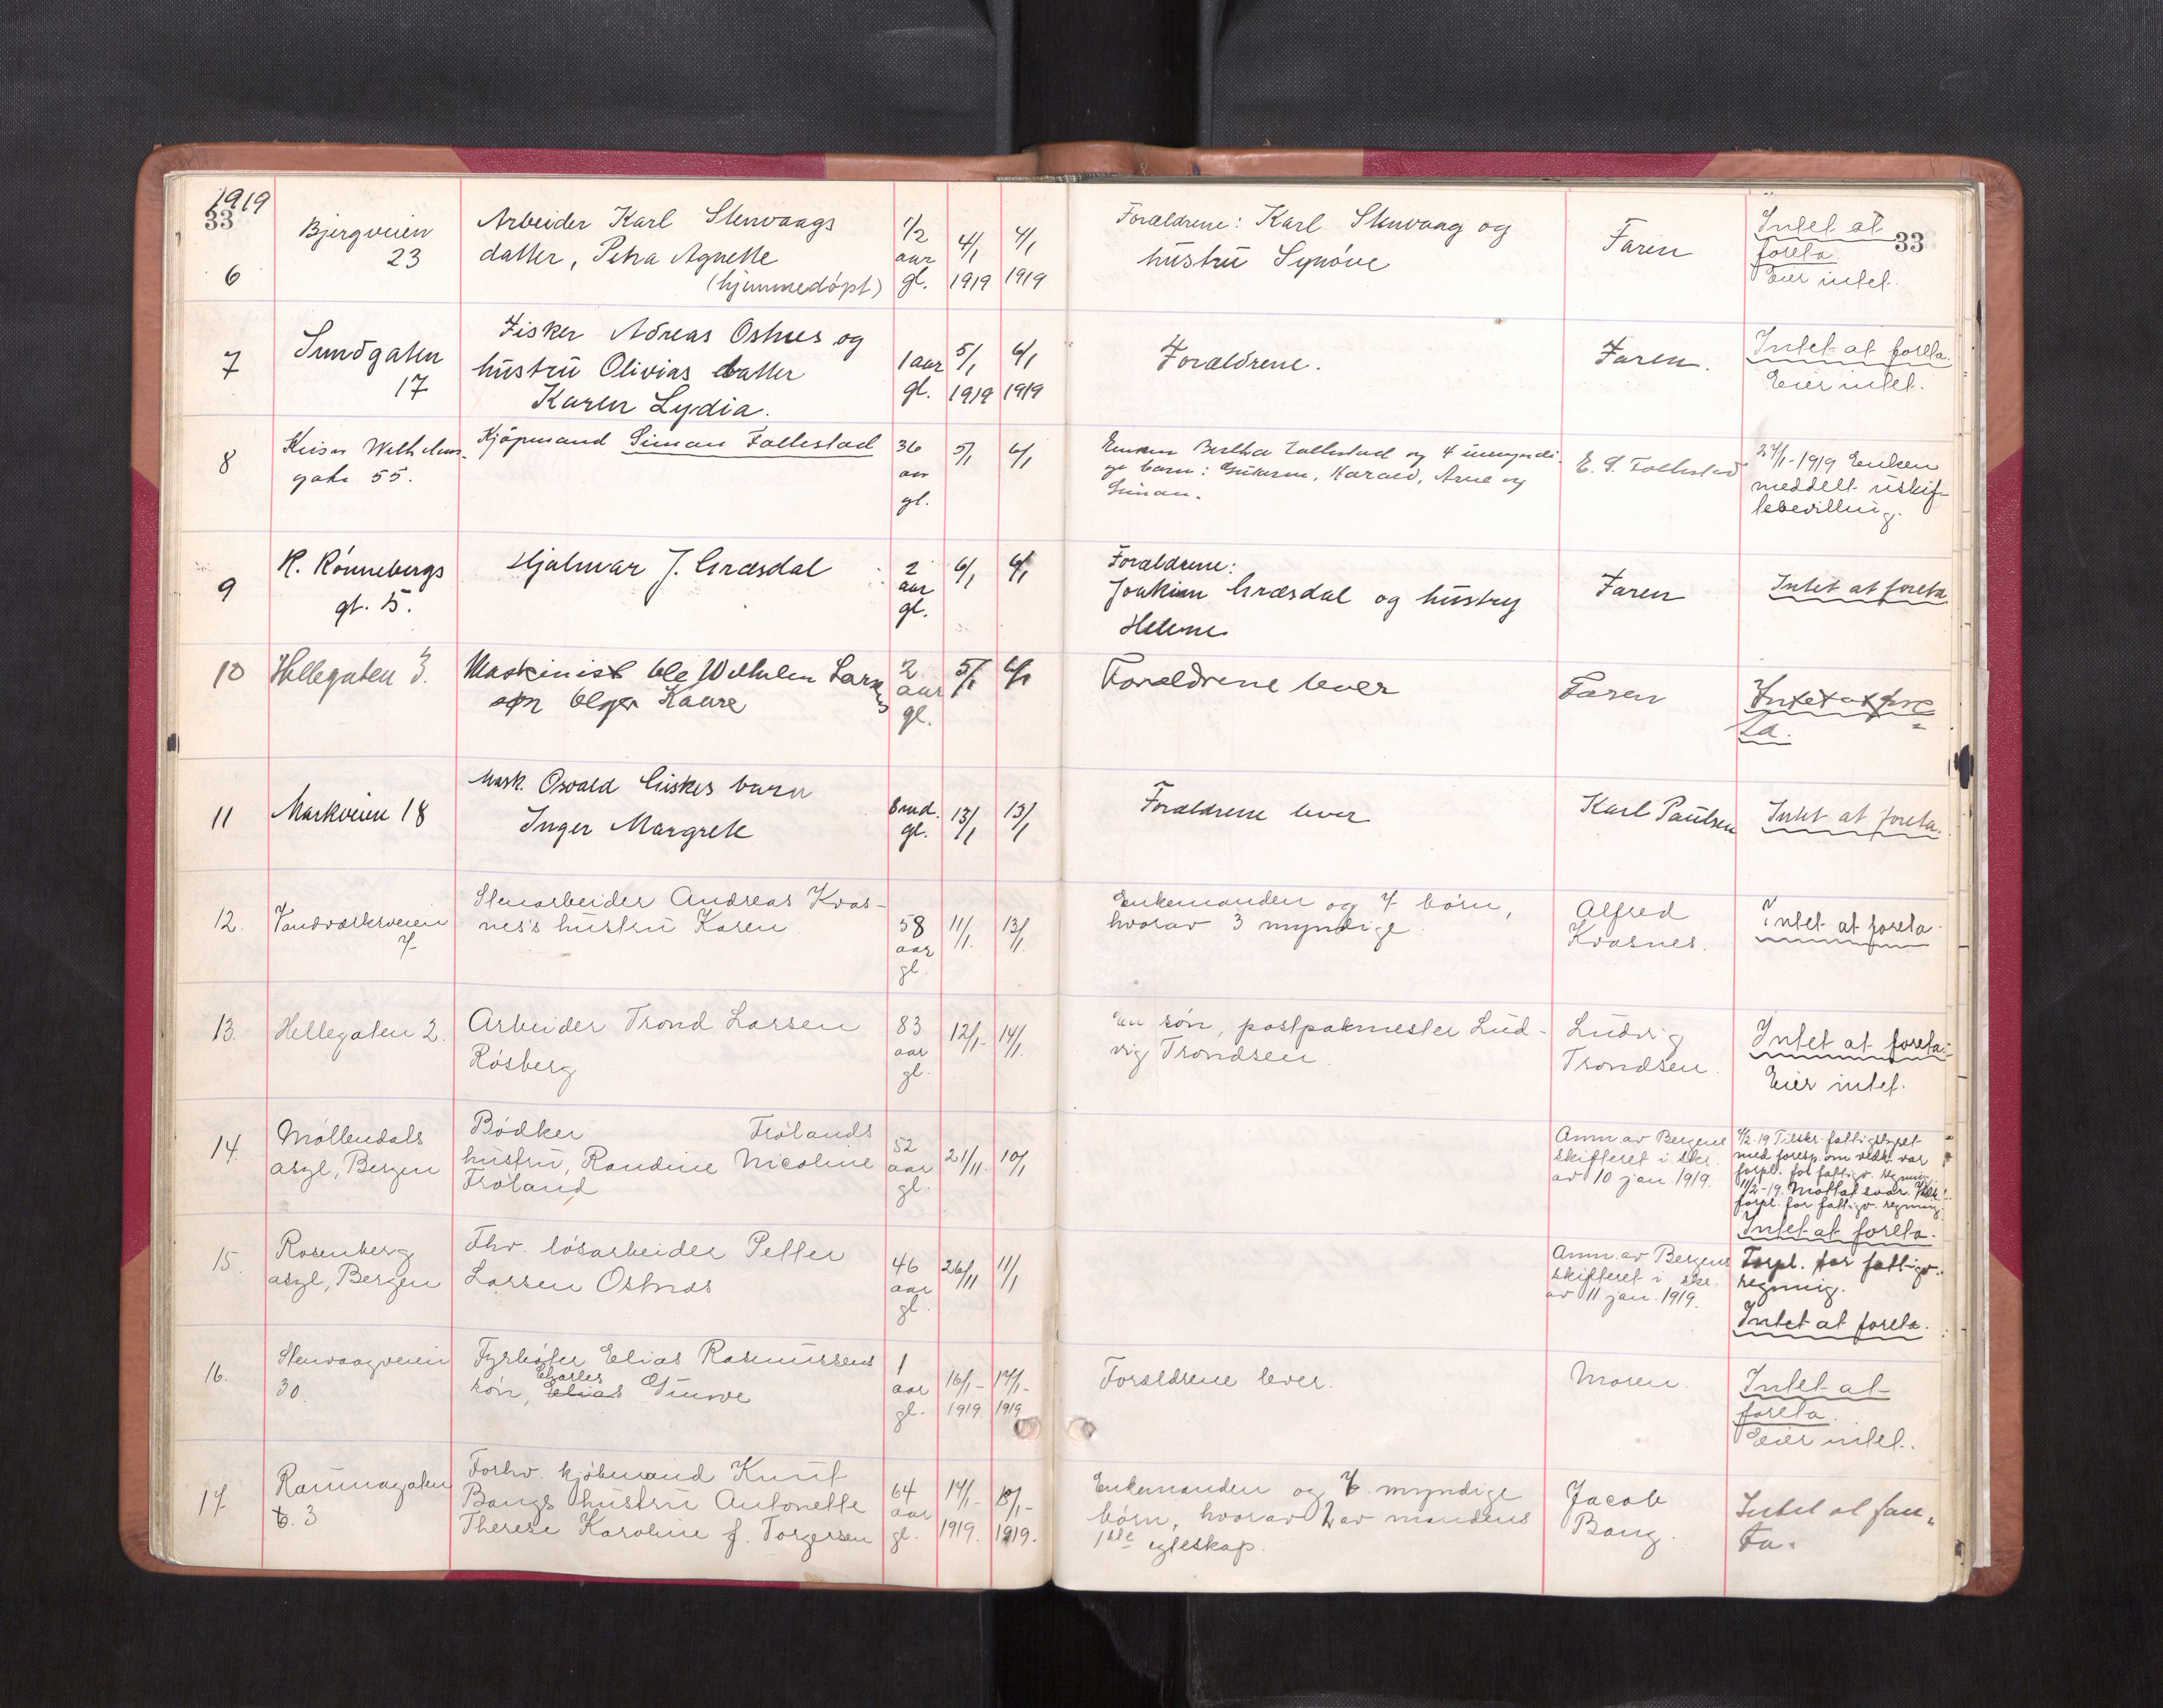 1919
33
33
6
Bjergveien
23
Arbeider Karl Stenvaags
datter, Petra Agnette
(hjemmedöpt)
1/2
aar
gl.
4/1
1919
4/1
1919
Forældrene: Karl Stenvaag og
hustru Synöve
Faren
Intet at
foreta.
Eier intet.
7
Sundgaten
17
Fisker Adreas Oshus og
hustru Olivias datter
Karen Lydia.
1 aar
gl.
5/1
1919
6/1
1919
Forældrene.
Faren.
Intet at foreta.
Eier intet.
8
Keiser Wilhelms
gate 55.
Kjöpmand Simon Follestad
36
aar
gl.
5/1
6/1
Enken Bertha Follestad og 4 umyndi-
ge barn: Guttorm, Harald, Arne og
Simon.
E. S. Follestad
24/1-1919 Enken
meddelt uskif-
tebevilling.
9
R. Rönnebergs
gt. 15.
Hjalmar J. Græsdal
2
aar
gl.
6/1
6/1
Forældrene:
Joakim Græsdal og hustru
Helene
Faren
Intet at foreta
10
Hellegaten 3.
Maskinist Ole Wilhelm Larsens
søn Olger Kaare
2
aar
gl.
5/1
6/1
Forældrene lever
Faren
Intet at fore
ta.
11
Markveien 18
Mask. Osvald Giskes barn
Inger Margrete
8 md.
gl.
13/1
13/1
Forældrene lever
Karl Paulsen
Intet at foreta.
12.
Vandværksveien
7
Stenarbeider Andreas Kvas-
nes's hustru Karen
58
aar
gl.
11/1.
13/1.
Enkemanden og 7 börn,
hvorav 3 myndige.
Alfred
Kvasnes.
Intet at foreta.
13.
Hellegaten 2.
Arbeider Trond Larsen
Rösberg
83
aar
gl.
12/1-
14/1.
En sön, postpakmester Lud-
vig Trondsen.
Ludvig
Trondsen.
Intet at foreta.
Eier intet.
14.
Möllendals
asyl, Bergen
Bödker Frölands
hustru, Randine Nicoline
Fröland
52
aar
gl.
21/11-
10/1
Anm. av Bergens
skifteret i skr.
av 10 jan. 1919.
4/2-19 Tilskr. fattigstyret
med foresp. om vedk. var
forpl. for fattigv. regning.
11/2-19. Mottat svar.
forpl. for fattigv. regning.
Intet at foreta.
15.
Rosenberg
asyl, Bergen
Fhv. lösarbeider Petter
Larsen Ostnes
46
aar
gl.
26/11
11/1
Anm. av Bergens
skifteret i skr.
av 11 jan. 1919.
Forpl. for fattigv.
regning.
Intet at foreta.
16.
Stenvaagveien
30.
Fyrböter Elias Rasmussens
Charles
sön, Elias Gunve
1
aar
gl.
16/1-
1919.
17/1-
1919
Forældrene lever.
Moren.
Intet at
foreta.
Eier intet.
17
Raumagaten
6. 3
Forhv. kjöbmand Knut
Bangs hustru Antonette
Therese Karoline f. Torgersen
64
aar
gl.
14/1-
1919.
18/1-
1919.
Enkemanden og 7 myndige
börn, hvorav 2 av mandens
1ste egteskap.
Jacob
Bang.
Intet at fore
ta.